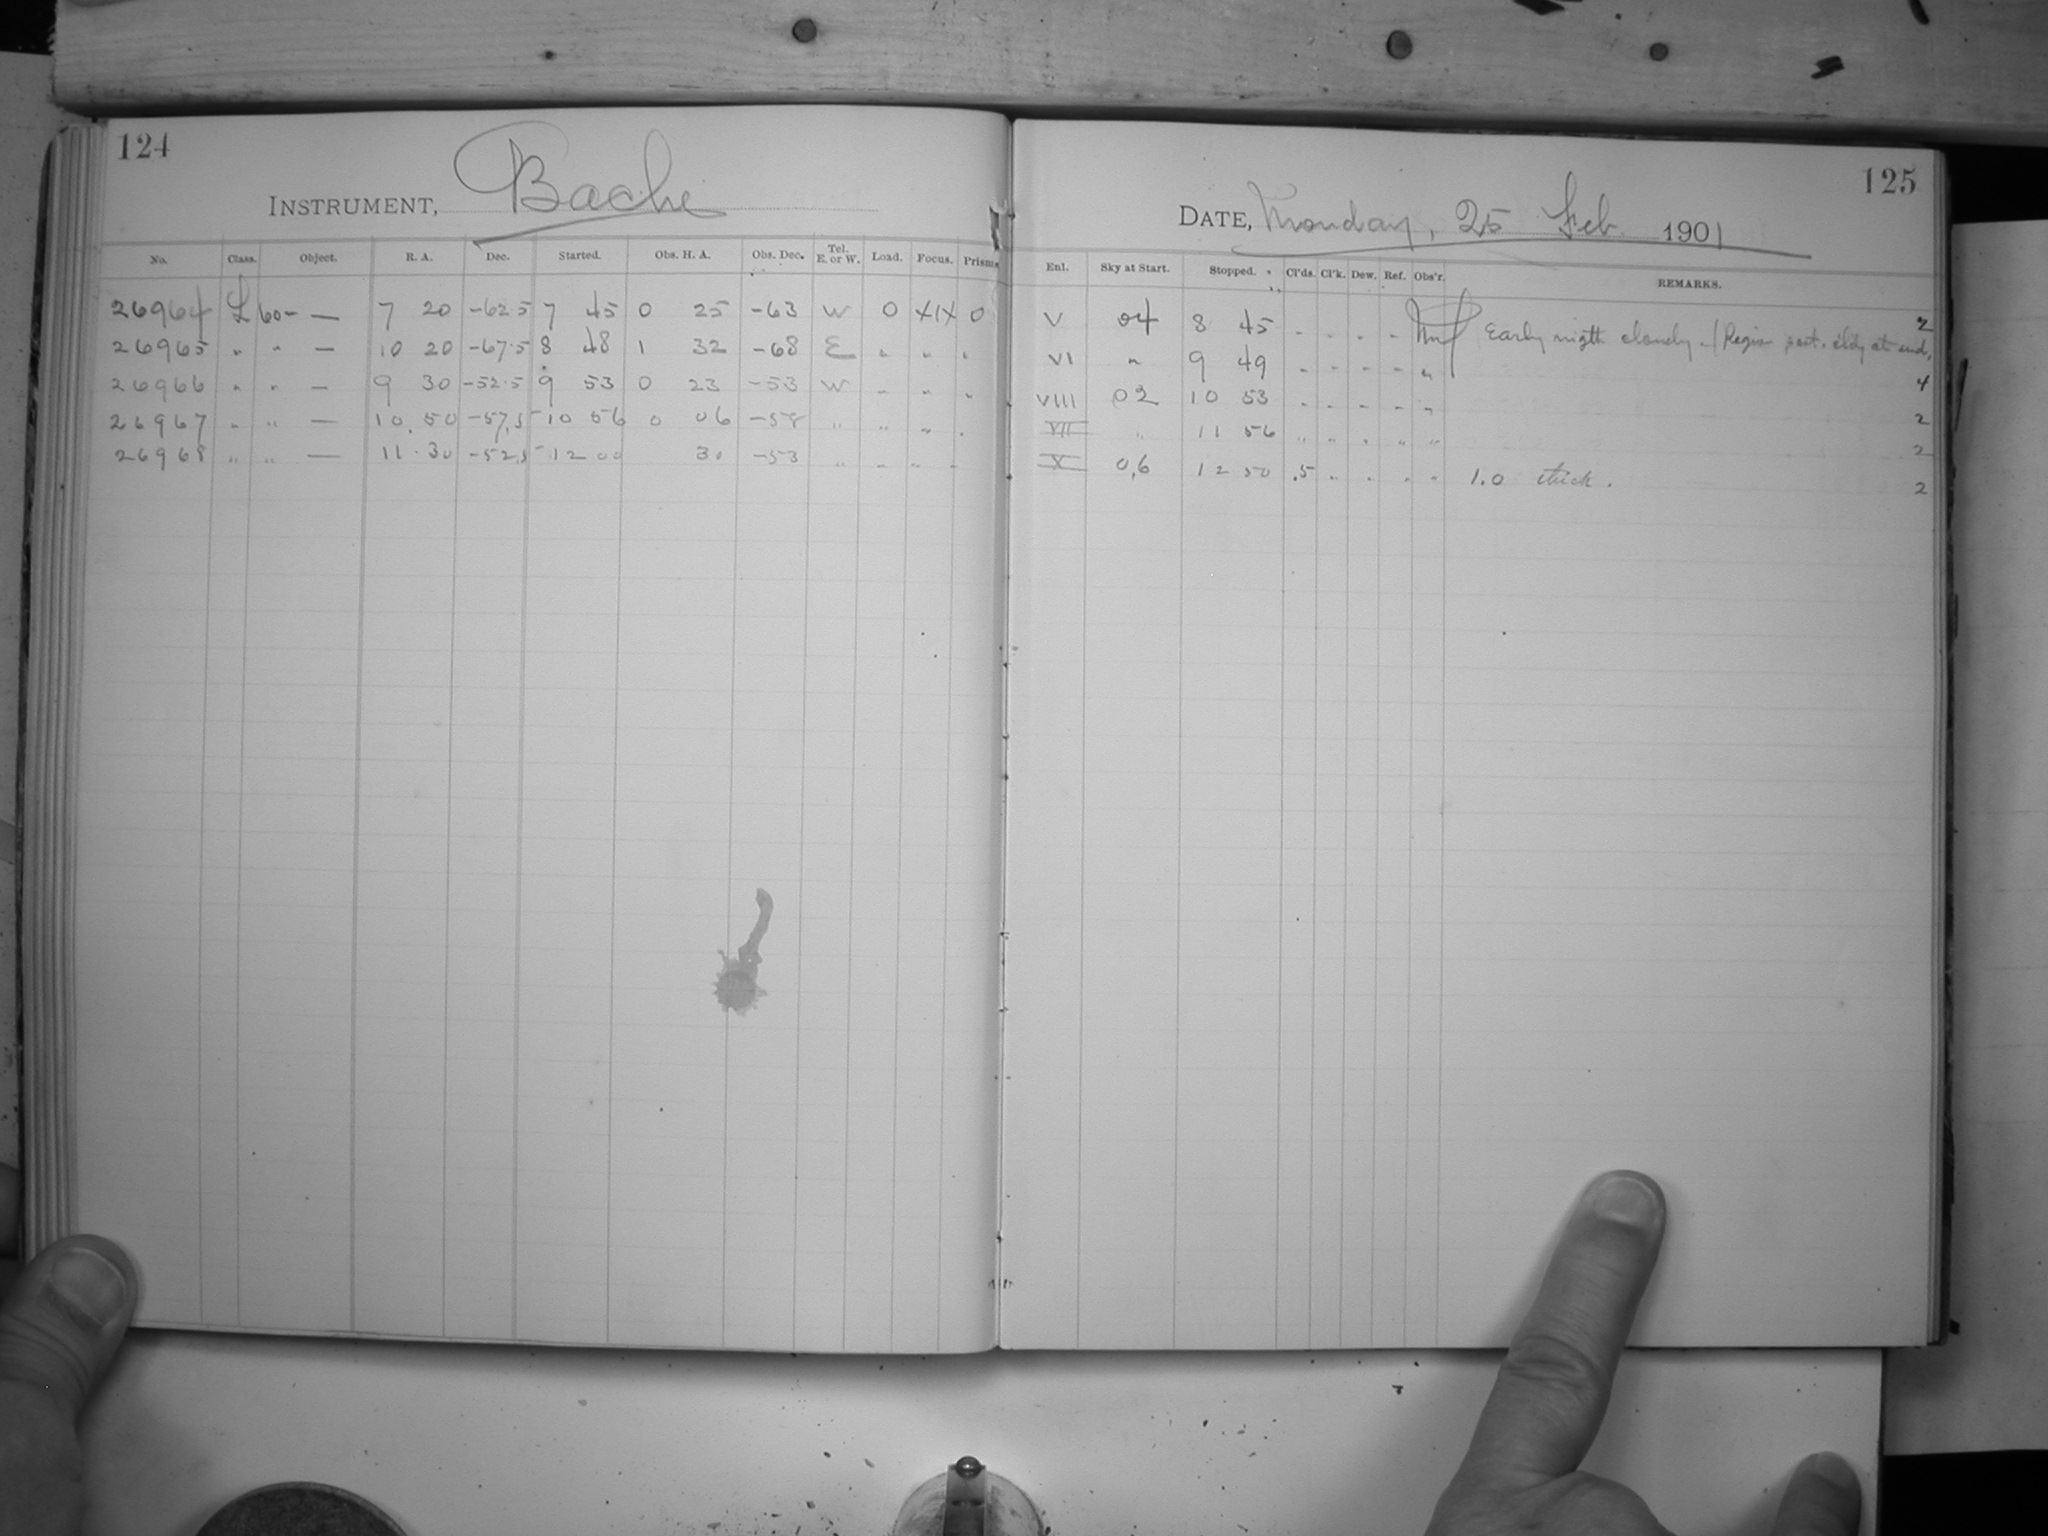 124
INSTRUMENT, Bache
No. Class. Object. R. A. Dec. Started. Obs. H. A. Obs. Dec. Tel. E. or W. Load. Focus. Prisms
26964 L 60- — 7 20 -62.5 7 45 0 25 -63 W 0 XIX 0
26965 " " — 10 20 -67.5 8 48 1 32 -68 E " " "
26966 " " — 9 30 -52.5 9 53 0 23 -53 W " " "
26967 " " — 10.50 -57.5 10 56 0 06 -58 " " " "
26968 " " — 11.30 -52.5 12 00 30 -53 " " " "
125
DATE, Monday, 25 Feb. 1901
Enl. Sky at Start. Stopped. Cl'ds. Cl'k. Dew. Ref. Obs'r. REMARKS.
V 04 8 45 - - - - Early nigth cloudy. (Region part. cldy at end, 2
VI " 9 49 - - - - " 4
VIII 02 10 53 - - - - " 2
VII " 11 56 " " " " " 2
X 0.6 12 50 .5 " " " " 1.0 thick. 2